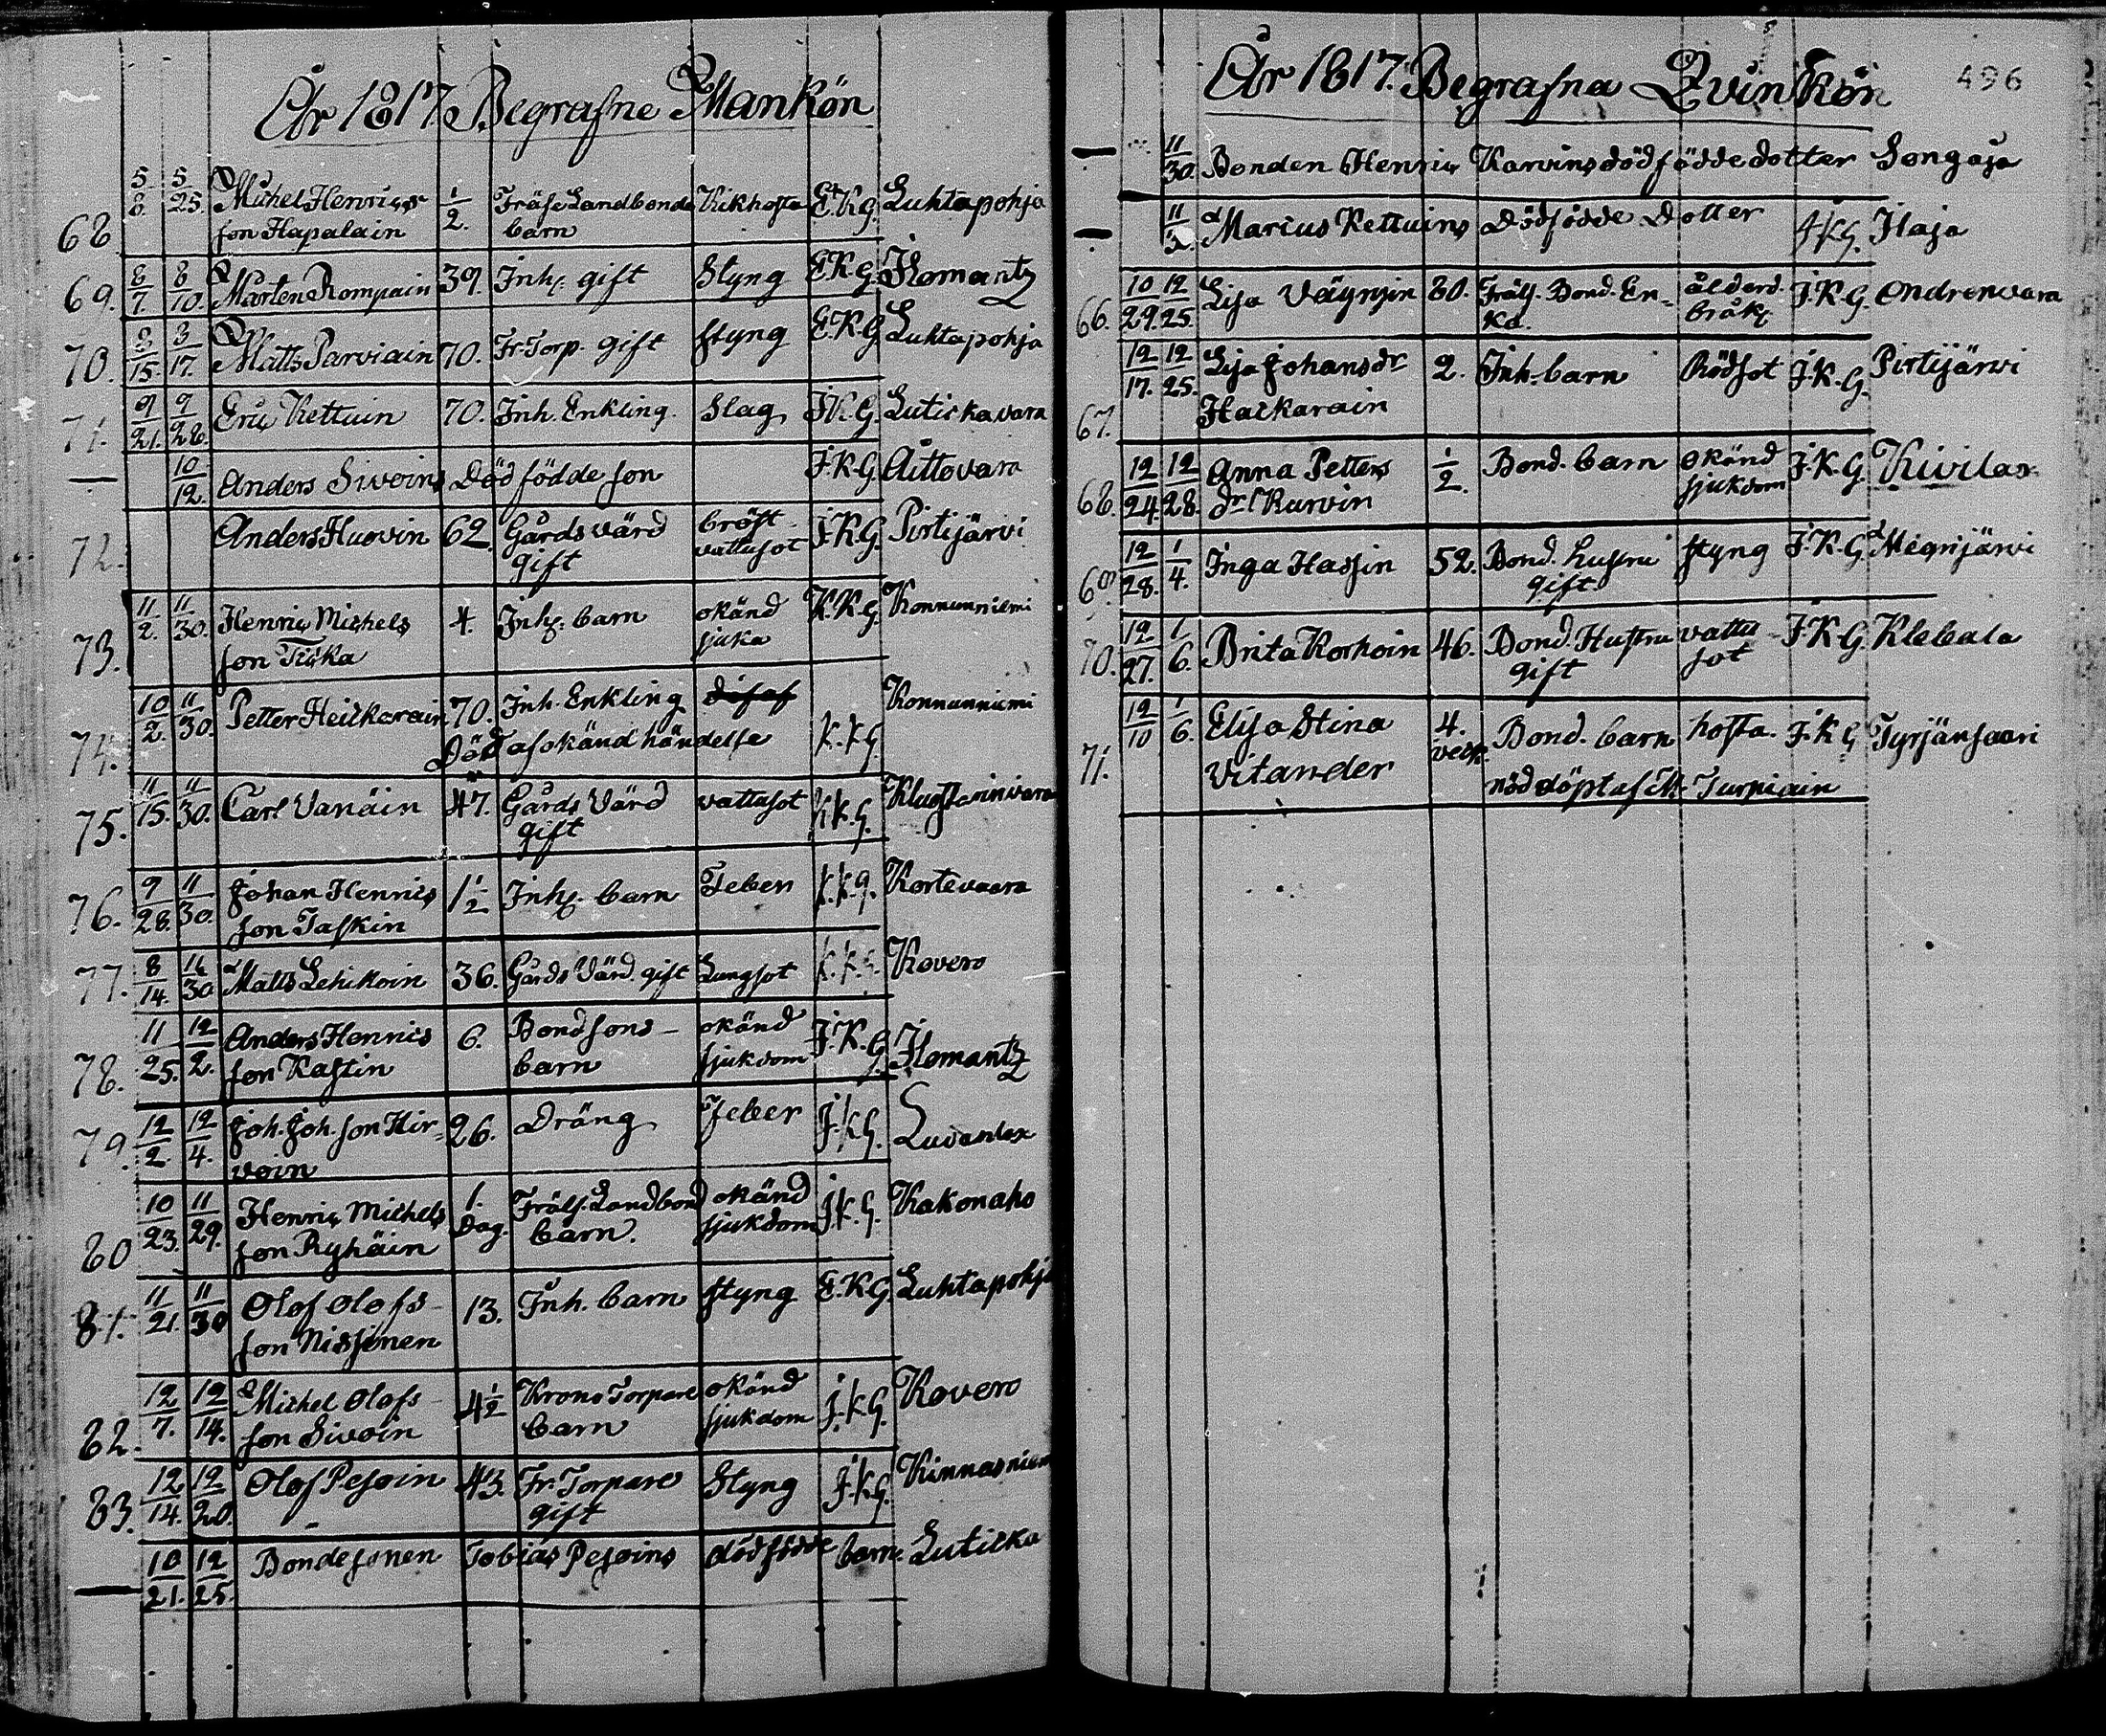 År 1817 Begrafne Mankön
68 5/8. 5/25. Michel Henrics 1/2. Fräse Landbonde Kikhosta E.K.G. Luhtapohja
son Hapalain barn
69. 8/7. 8/10. Mårten Rompain 39. Inh. gift Styng E.K.G. Ilomantz
70. 8/15. 8/17. Matts Parviain 70. Fr. Torp. gift styng E.K.G. Luhtapohja
71. 9/21. 9/28. Eric Kettuin 70. Inh. Enkling. Slag I.K.G. Lutickavara
— 10/12. Anders Sivoins Död födde son I.K.G. Aittovara
72. Anders Huovin 62. Gårdsvärd bröst- I.K.G. Pirtijärvi
gift vattusot
73. 11/2. 11/30. Henric Michels 4. Inh. barn okänd K.K.G. Konnunniemi
son Ticka sjuka
74. 10/2. 11/30. Petter Heickarain 70. Inh. Enkling Konnunniemi
Död af okänd händelse K.K.G
75. 11/15. 11/30. Carl Vanäin 47. Gårds Värd vattusot K.K.G.
gift
76. 9/28. 11/30. Johan Henrics 1 1/2 Inh. barn Feber K.K.G. Kortevaara
son Taskin
77. 8/14. 11/30 Matts Lehikoin 36. Gårds Värd. gift Lungsot K.K.G. Kovero
78. 11/25. 12/2. Anders Henrics 6. Bondsons- okänd I.K.G. Ilomantz
son Kastin barn sjukdom
79. 12/2. 12/4. Joh. Joh. son Hir- 26. Dräng Feber I.K.G. Luvanlax
voin
80 10/23. 11/29. Henric Michels 1. Frälse. Landbond okänd I.K.G. Kakonaho
son Ryhäin Dag. barn. sjukdom
81. 11/21. 11/30 Olof Olofs- 13. Inh. barn styng E.K.G. Luhtapohja
son Nissinen
82. 12/7. 12/14. Michel Olofs- 4 1/2 Krono Torpare okänd I.K.G. Kovero
son Sivoin barn sjukdom
83. 12/14. 12/20. Olof Pesoin 43. Fr. Torpare Styng I.K.G. Kinnasniem
gift
— 10/21. 12/25. Bondesonen Tobias Pesoins dödfödde barn. Luticka
År 1817. Begrafna Qvinkön 496
— 11/30. Bonden Henric Karvins dödfödde dotter Songaja
— Marcus Kettuins Dödfödde Dotter I.K.G. Ilaja
66. 10/29. 12/25. Lisa Väynsin 80. Frälse. Bond. En- ålderd. I.K.G. Endronvara
ka. bråk
67. 12/17. 12/25. Lisa Johansdr 2. Inh. barn Rödsot I.K.G. Pirtijärvi
Hackarain
68. 12/24. 12/28. Anna Petters 1/2. Bond. barn okänd I.K.G. Kivilax
dr Kurvin sjukdom
69. 12/28. 1/4. Inga Hassin 52. Bond. hustru styng I.K.G. Megrijärvi
gift
70. 12/27. 1/6. Brita Korhoin 46. Bond. Hustru vattu- I.K.G. Klebala
gift sot
71. 12/10 1/6. Elisa Stina 4. Bond. barn hosta. I.K.G Tyrjänsaari
Vitander veck. nöddöpt af M. Turpiain